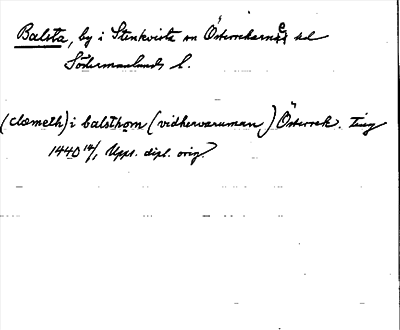 Balsta, by i Stenkvista sn Österrekarne hd
Södermanlands l.
(clemeth) i balsthom (vidhervaruman) Österrek. ting
1440 14/1 Upps. dipl. orig.